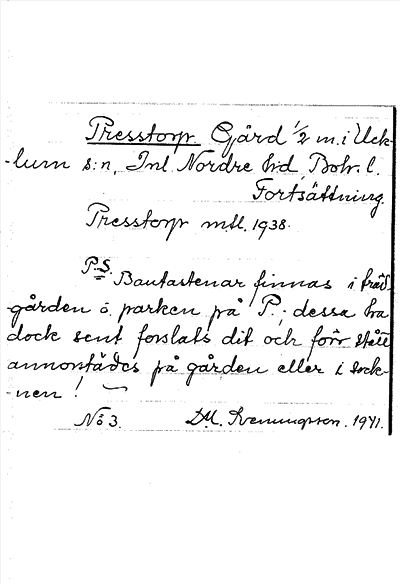 Presstorp. Gård 1/2 m. i Uck-
-lum s:n, Inl. Nordre h:d, Boh. l.
Fortsättning.
Presstorp mtl. 1938.
P.S. Bautastenar finnas i träd-
gården o. parken på P.; dessa ha
dock sent forslats dit och förr stått
annorstädes på gården eller i sock-
-nen!
No 3. D.M. Svenungsson. 1941.